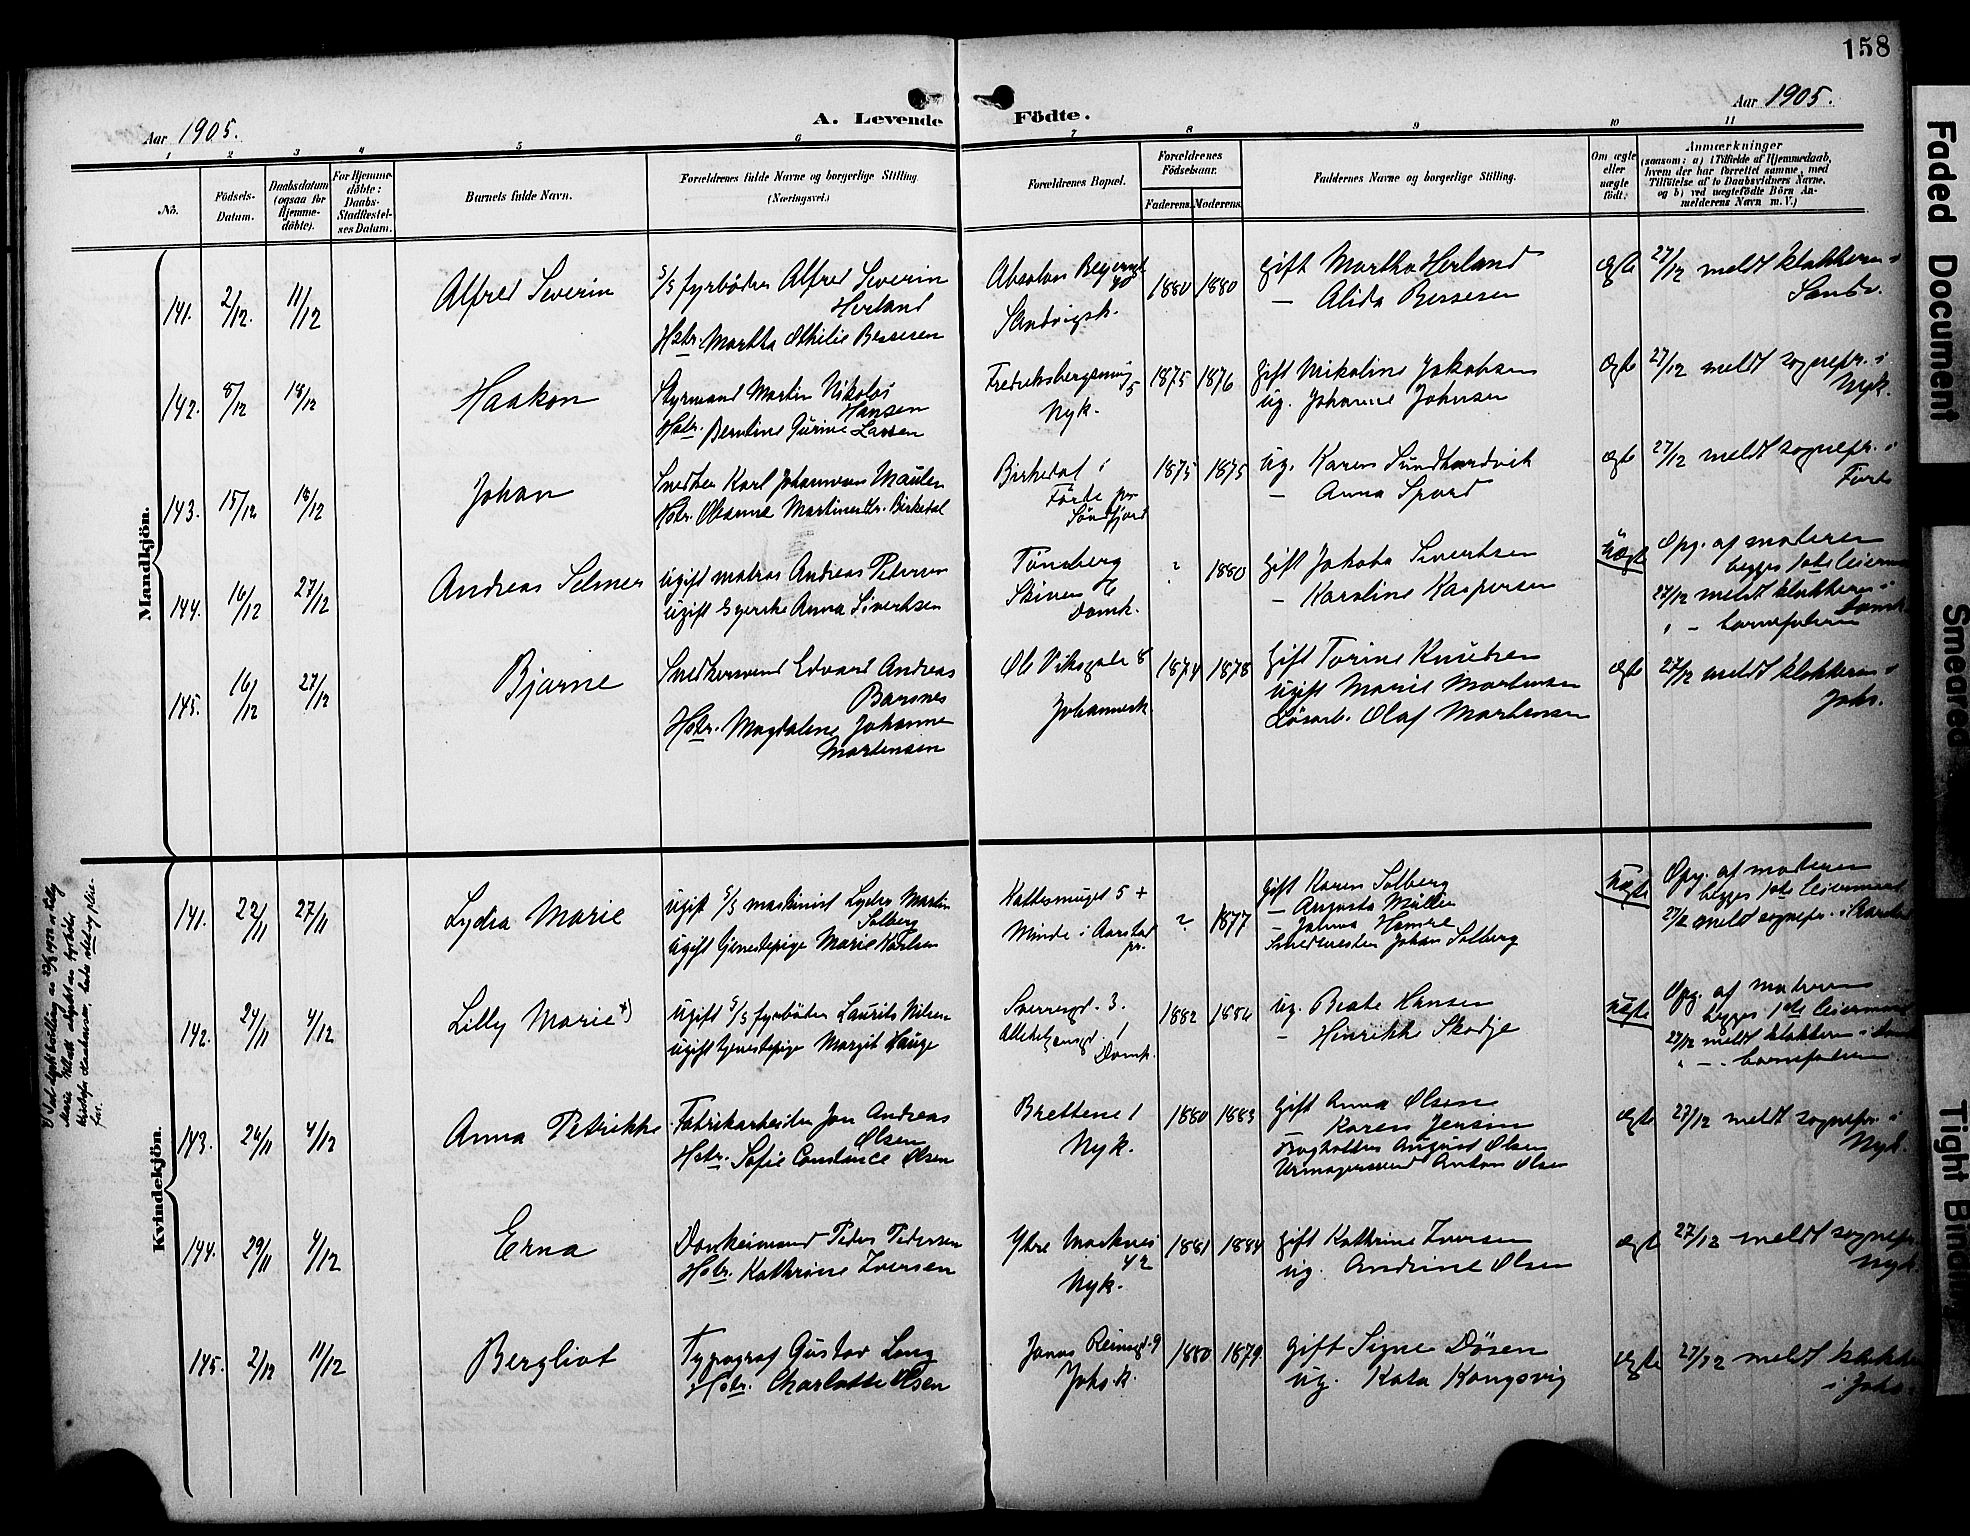 158
Aar 1905.
A. Levende
Födte.
Aar 1905.
1 2 3 4 5 6 7 8 9 10 11
Nô.
Födsels-
Datum.
Daabsdatum
(ogsaa for
Hjemme-
döbte).
For Hjemme-
döbte:
Daabs-
Stadfæstel-
ses Datum.
Barnets fulde Navn.
Forældrenes fulde Navne og borgerlige Stilling.
(Næringsvei.)
Forældrenes Bopæl.
Forældrenes
Födselsaar.
Faderens.
Moderens.
Faddernes Navne og borgerlige Stilling.
Om ægte
eller
uægte
födt.
Anmærkninger
(saasom: a) i Tilfælde af Hjemmedaab,
hvem der har forrettet samme, med
Tilföielse af to Daabsvidners Navne,
og b) ved uægtefödte Börn An-
melderens Navn m. V.)
Mandkjön.
141. 2/12. 11/12
Alfred Severin
S/S fyrbøder Alfred Severin
Herland
Hstr. Martha Othilie Bessesen
Absalon Beyersgt
Sandvigsk.
1880 1880
gift Martha Herland
— Alida Bessesen
ægte
27/12 meldt klokkeren i
Sandv.
142. 8/12 18/12
Haakon
Styrmand Martin Nikolai
Hansen
Hstr. Berntine Gurine Larsen
5
Nyk.
1875 1876
Gift Nikoline Jakobsen
ug. Johanne Johnsen
ægte
27/12 meldt sognepr. i
Nyk.
143. 15/12 18/12
Johan
Snedker Karl Johannesen Maulen
Hstr. Oleanne Martinesdtr. Birkedal
Birkedal i
Førde pr
Søndfjord
1875 1875
ug. Karen Sundhordvik
— Anna
ægte
27/12 meldt sognepr. i
Førde
144. 16/12 27/12
Andreas Selmer
ugift matros Andreas Petersen
ugift Syerske Anna Sivertsen
Tønsberg
Skiven
Domk.
? 1880
Gift Jakoba Sivertsen
— Karoline Kaspersen
Uægte
Opg. af moderen
begges 1ste leierm
27/12 meldt klokkeren i
Domk.
" — barnefaderen
145. 16/12 27/12
Bjarne
Snedkersvend Edvard Andreas
Barsnes
Hstr. Magdalene Johanne
Martensen
Ole Viksgate 8
Johannesk
1874 1878
Gift Torine Knudsen
ugift Marie Martensen
Løsarb. Olaf Martensen
ægte
27/12 meldt klokkeren i
Johs.
Kvindekjön.
141. 22/11 27/11
Lydia Marie
ugift S/S maskinist Lyder Martin
Solberg
ugift tjenestepige Marie Karlsen
Kaltesmuget 5 +
Minde i Aarstad
pr.
? 1877
gift Karen Solberg
— Augusta Müller
— Hamre
Smedmester Johan Solberg
Uægte
Opg. af moderen
begges 1ste leiermaal
27/12 meldt sognepr. i Aarstad
142. 24/11 4/12
Lilly Marie *)
ugift S/S fyrbøder Laurits Nilsen
ugift tjenestepige Margit Hauge
Sverresgt. 3.
Allehelgensgt. 1
Domk.
1882 1884
ug. Beate Hansen
— Henrikke Skodje
Uægte
Opg. af moderen
begges 1ste leiermaal
27/12 meldt klokkeren i Domk
" — barnefaderen
143. 26/11 4/12
Anna Petrikke
Fabrikarbeider Jon Andreas
Olsen
Hstr. Sofie Constance Olsen
Brettene 1
Nyk.
1880 1883
gift Anna Olsen
— Karen Jensen
Bogholder August Olsen
Urmagersvend Anton Olsen
ægte
27/12 meldt sognepr. i
Nyk.
144. 29/11 4/12
Erna
Donkeimand Peder Pedersen
Hstr. Kathrine Iversen
Ytre Markvei
42
Nyk.
1881 1884
gift Kathrine Iversen
ug. Andrine Olsen
ægte
27/12 meldt sognepr.
Nyk.
145. 2/12 11/12
Bergliot
Typograf Gustav Lang
Hstr. Charlotte Olsen
Jonas Reinsgt. 9
Johs.k.
1880 1879
gift Signe Døsen
ug. Kata Kongsvig
ægte
27/12 meldt klokk
i Johs.
Faded Document
Smeared
Tight Binding